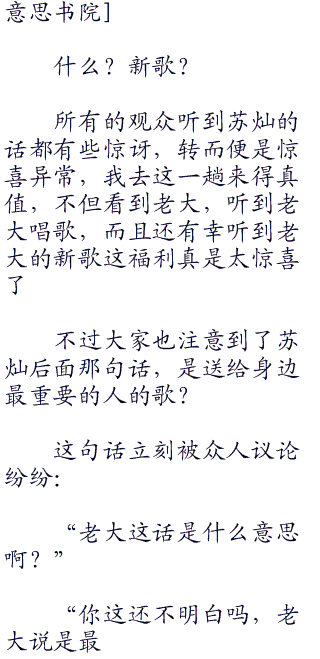 意思书院]
什么？新歌？
所有的观众听到苏灿的
话都有些惊讶，转而便是惊
喜异常，我去这一趟来得真
值，不但看到老大，听到老
大唱歌，而且还有幸听到老
大的新歌这福利真是太惊喜
了
不过大家也注意到了苏
灿后面那句话，是送给身边
最重要的人的歌？
这句话立刻被众人议论
纷纷：
“老大这话是什么意思
啊？”
“你这还不明白吗，老
大说是最